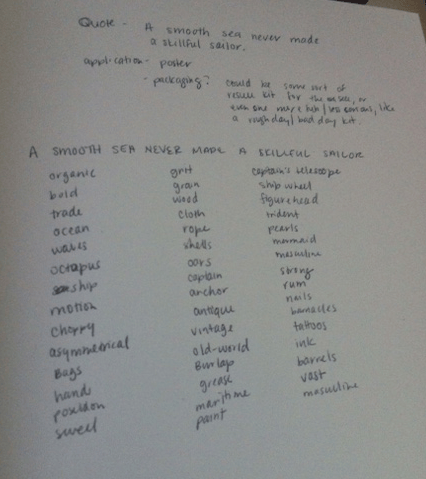 Quote - A smooth sea never made
a skillful sailor.
application - poster
- packaging? could be some sort of
rescue kit for the
even one more / less serious, like
a rough day / bad day kit.
A SMOOTH SEA NEVER MADE A SKILLFUL SAILOR
organic
bold
trade
ocean
waves
octopus
ship
motion
choppy
asymmetrical
Bags
hand
poseidon
swell
grit
grain
wood
cloth
rope
shells
oars
captain
anchor
antique
vintage
old-world
Burlap
grease
maritime
paint
captain's telescope
ship wheel
figurehead
trident
pearls
mermaid
masculine
strong
rum
nails
barnacles
tattoos
ink
barrels
vast
masculine